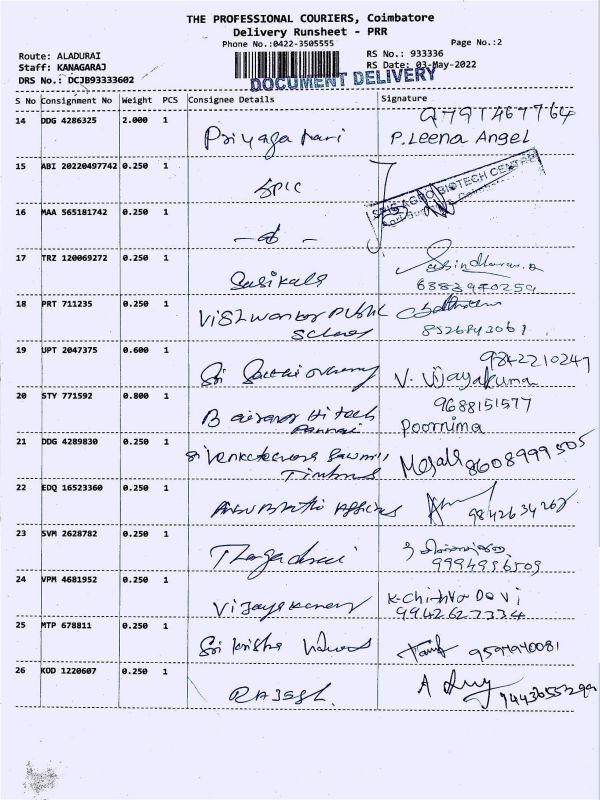 THE PROFESSIONAL COURIERS, Coimbatore
Delivery Runsheet - PRR
Phone No.:0422-3505555
Page No.:2
Route: ALADURAI
RS No.: 933336
Staff: KANAGARAJ
RS Date: 03-May-2022
DRS No.: DCJB93333602
DOCUMENT DELIVERY
S No Consignment No Weight PCS Consignee Details Signature
14 DDG 4286325 2.000 1 9791467764
P.Leena Angel
15 ABI 20220497742 0.250 1 SPIC
SPIC AGRO BIOTECH CENTRE
16 MAA 565181742 0.250 1 - do -
17 TRZ 120069272 0.250 1 Sasikala
6383940259
18 PRT 711235 0.250 1 Vishwankar Public
School
8526843061
19 UPT 2047375 0.600 1 Sri 9842210247
V. Vijayakumar
20 STY 771592 0.800 1 B Hitech 9688151577
Poornima
21 DDG 4289830 0.250 1 Sri Venkateswara Sawmill
Timbers 8608999505
22 EDQ 16523360 0.250 1 9842634262
23 SVM 2628782 0.250 1
9994996509
24 VPM 4681952 0.250 1 K-Chithra Devi
9942627334
25 MTP 678811 0.250 1 Sri Krishna 9594940081
26 KOD 1220607 0.250 1 9443655299